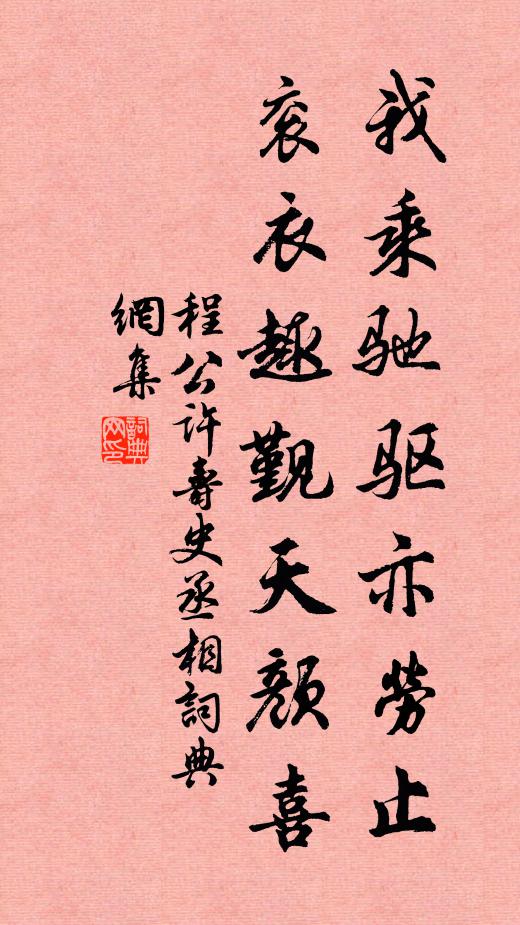 我乘驰驱亦劳止
衮衣趣觐天颜喜
程公許壽史丞相詞典
網集
詞典
网印